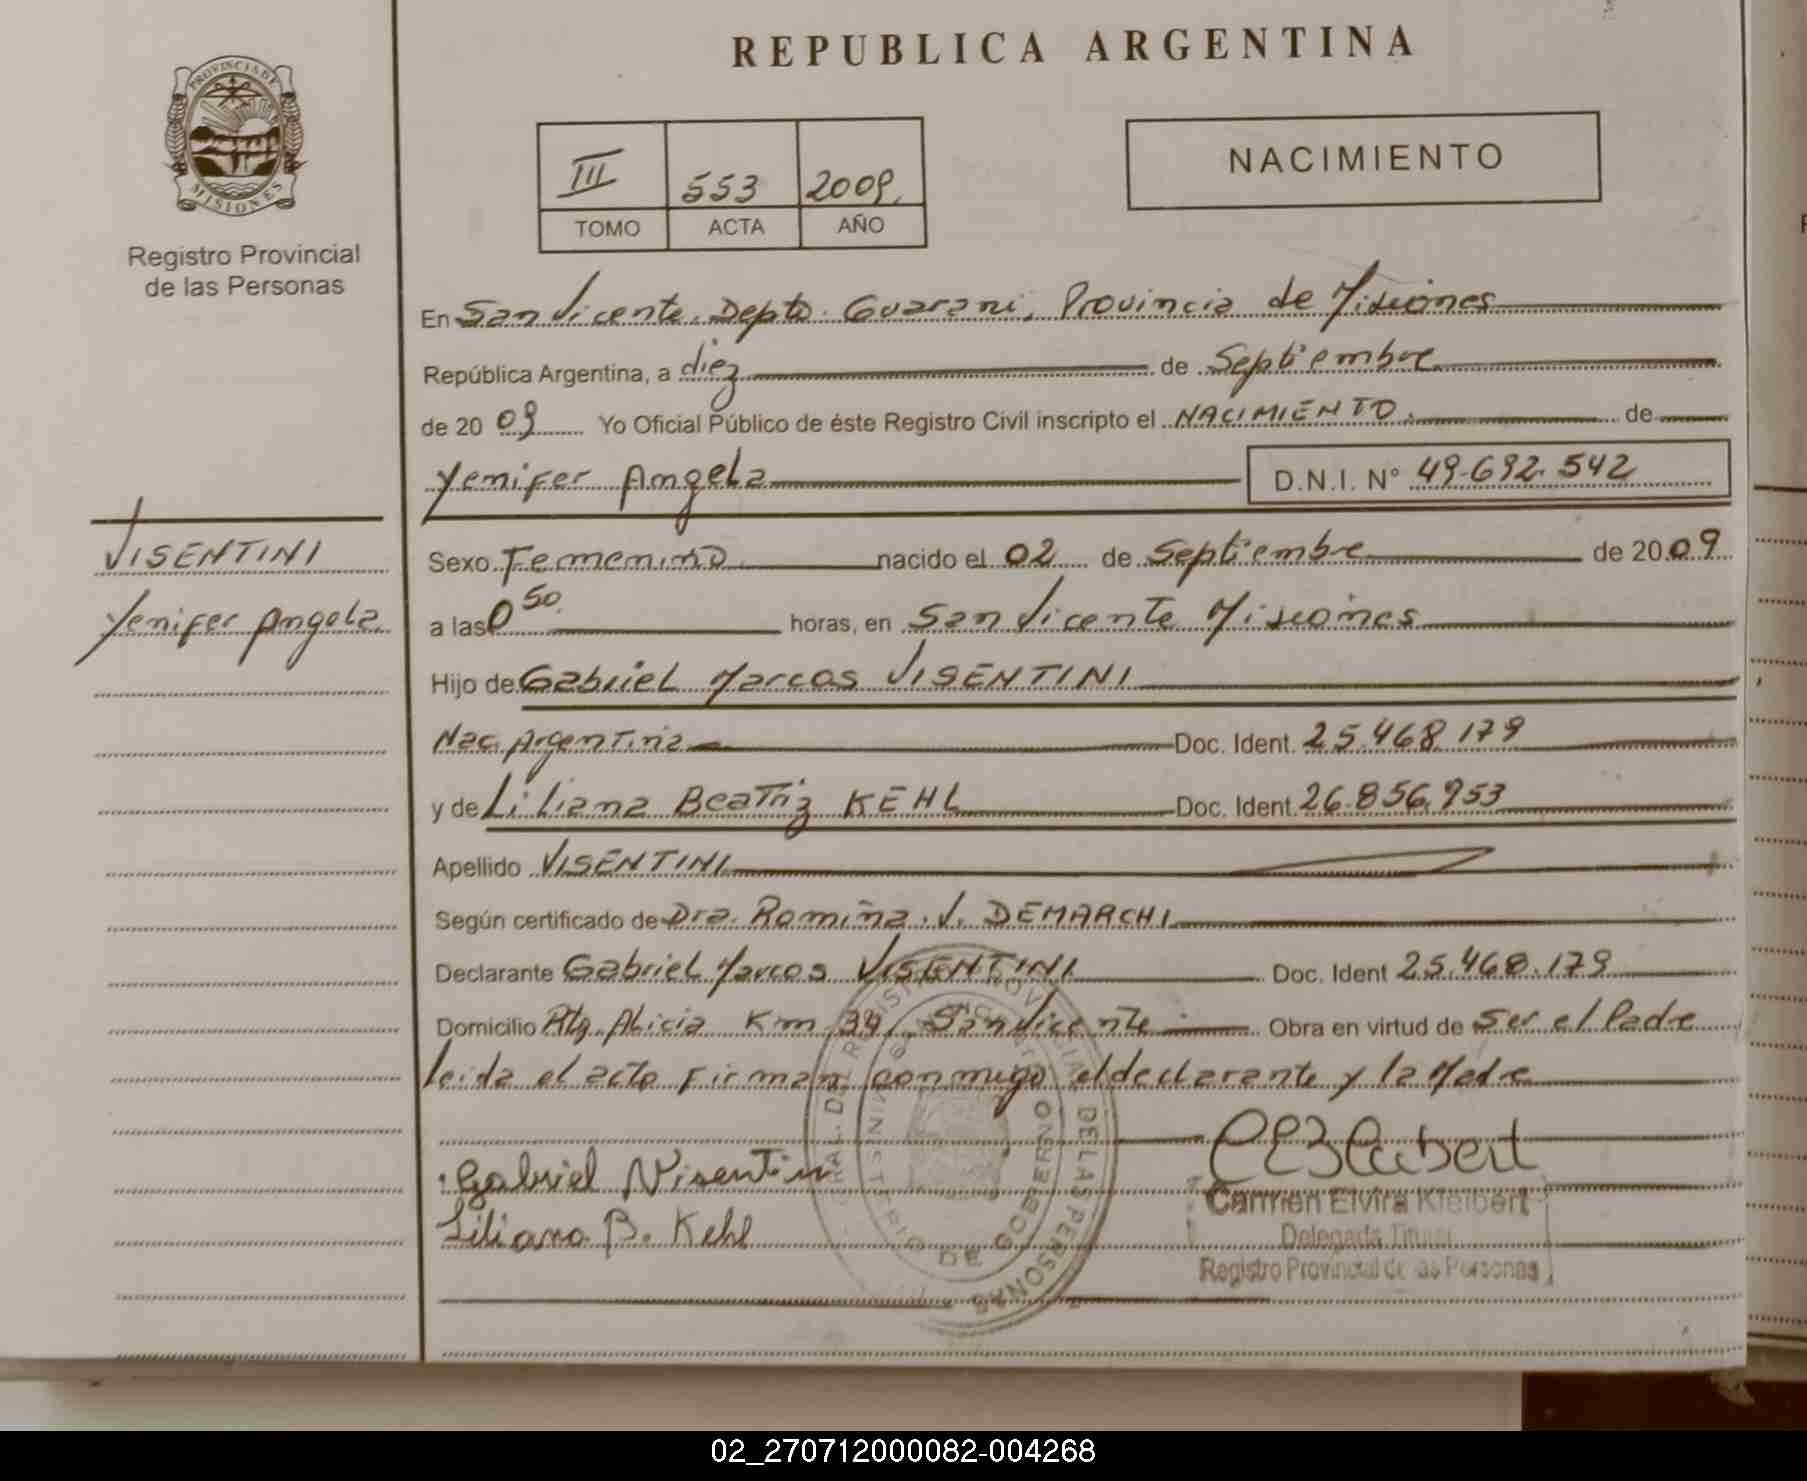 REPUBLICA ARGENTINA
PROVINCIA DE
MISIONES
Registro Provincial
de las Personas
III 553 2009.
TOMO ACTA AÑO
NACIMIENTO
En San Vicente. Depto. Guarani, Provincia de Misiones
República Argentina, a diez de Septiembre
de 20 09 Yo Oficial Público de éste Registro Civil inscripto el NACIMIENTO. de
Yenifer Angela D.N.I. N° 49.692.542
VISENTINI
Yenifer Angela
Sexo Femenino nacido el 02 de Septiembre de 20 09
a las 0 50. horas, en San Vicente Misiones
Hijo de Gabriel Marcos VISENTINI
Nac. Argentina Doc. Ident. 25.468.179
y de Liliana Beatriz KEHL Doc. Ident. 26.856.953
Apellido VISENTINI
Según certificado de Dra. Romina. V. DEMARCHI
Declarante Gabriel Marcos VISENTINI Doc. Ident 25.468.179
Domicilio Ptq. Alicia Km 34. San Vicente Obra en virtud de Ser el Padre
leida el acto Firman conmigo el declarante y la Madre
Gabriel Visentin
Liliana B. Kehl
Carmen Elvira Kleibert
Delegada Titular
Registro Provincial de las Personas
DE LAS PERSONAS
MINISTERIO DE GOBIERNO
02_270712000082-004268